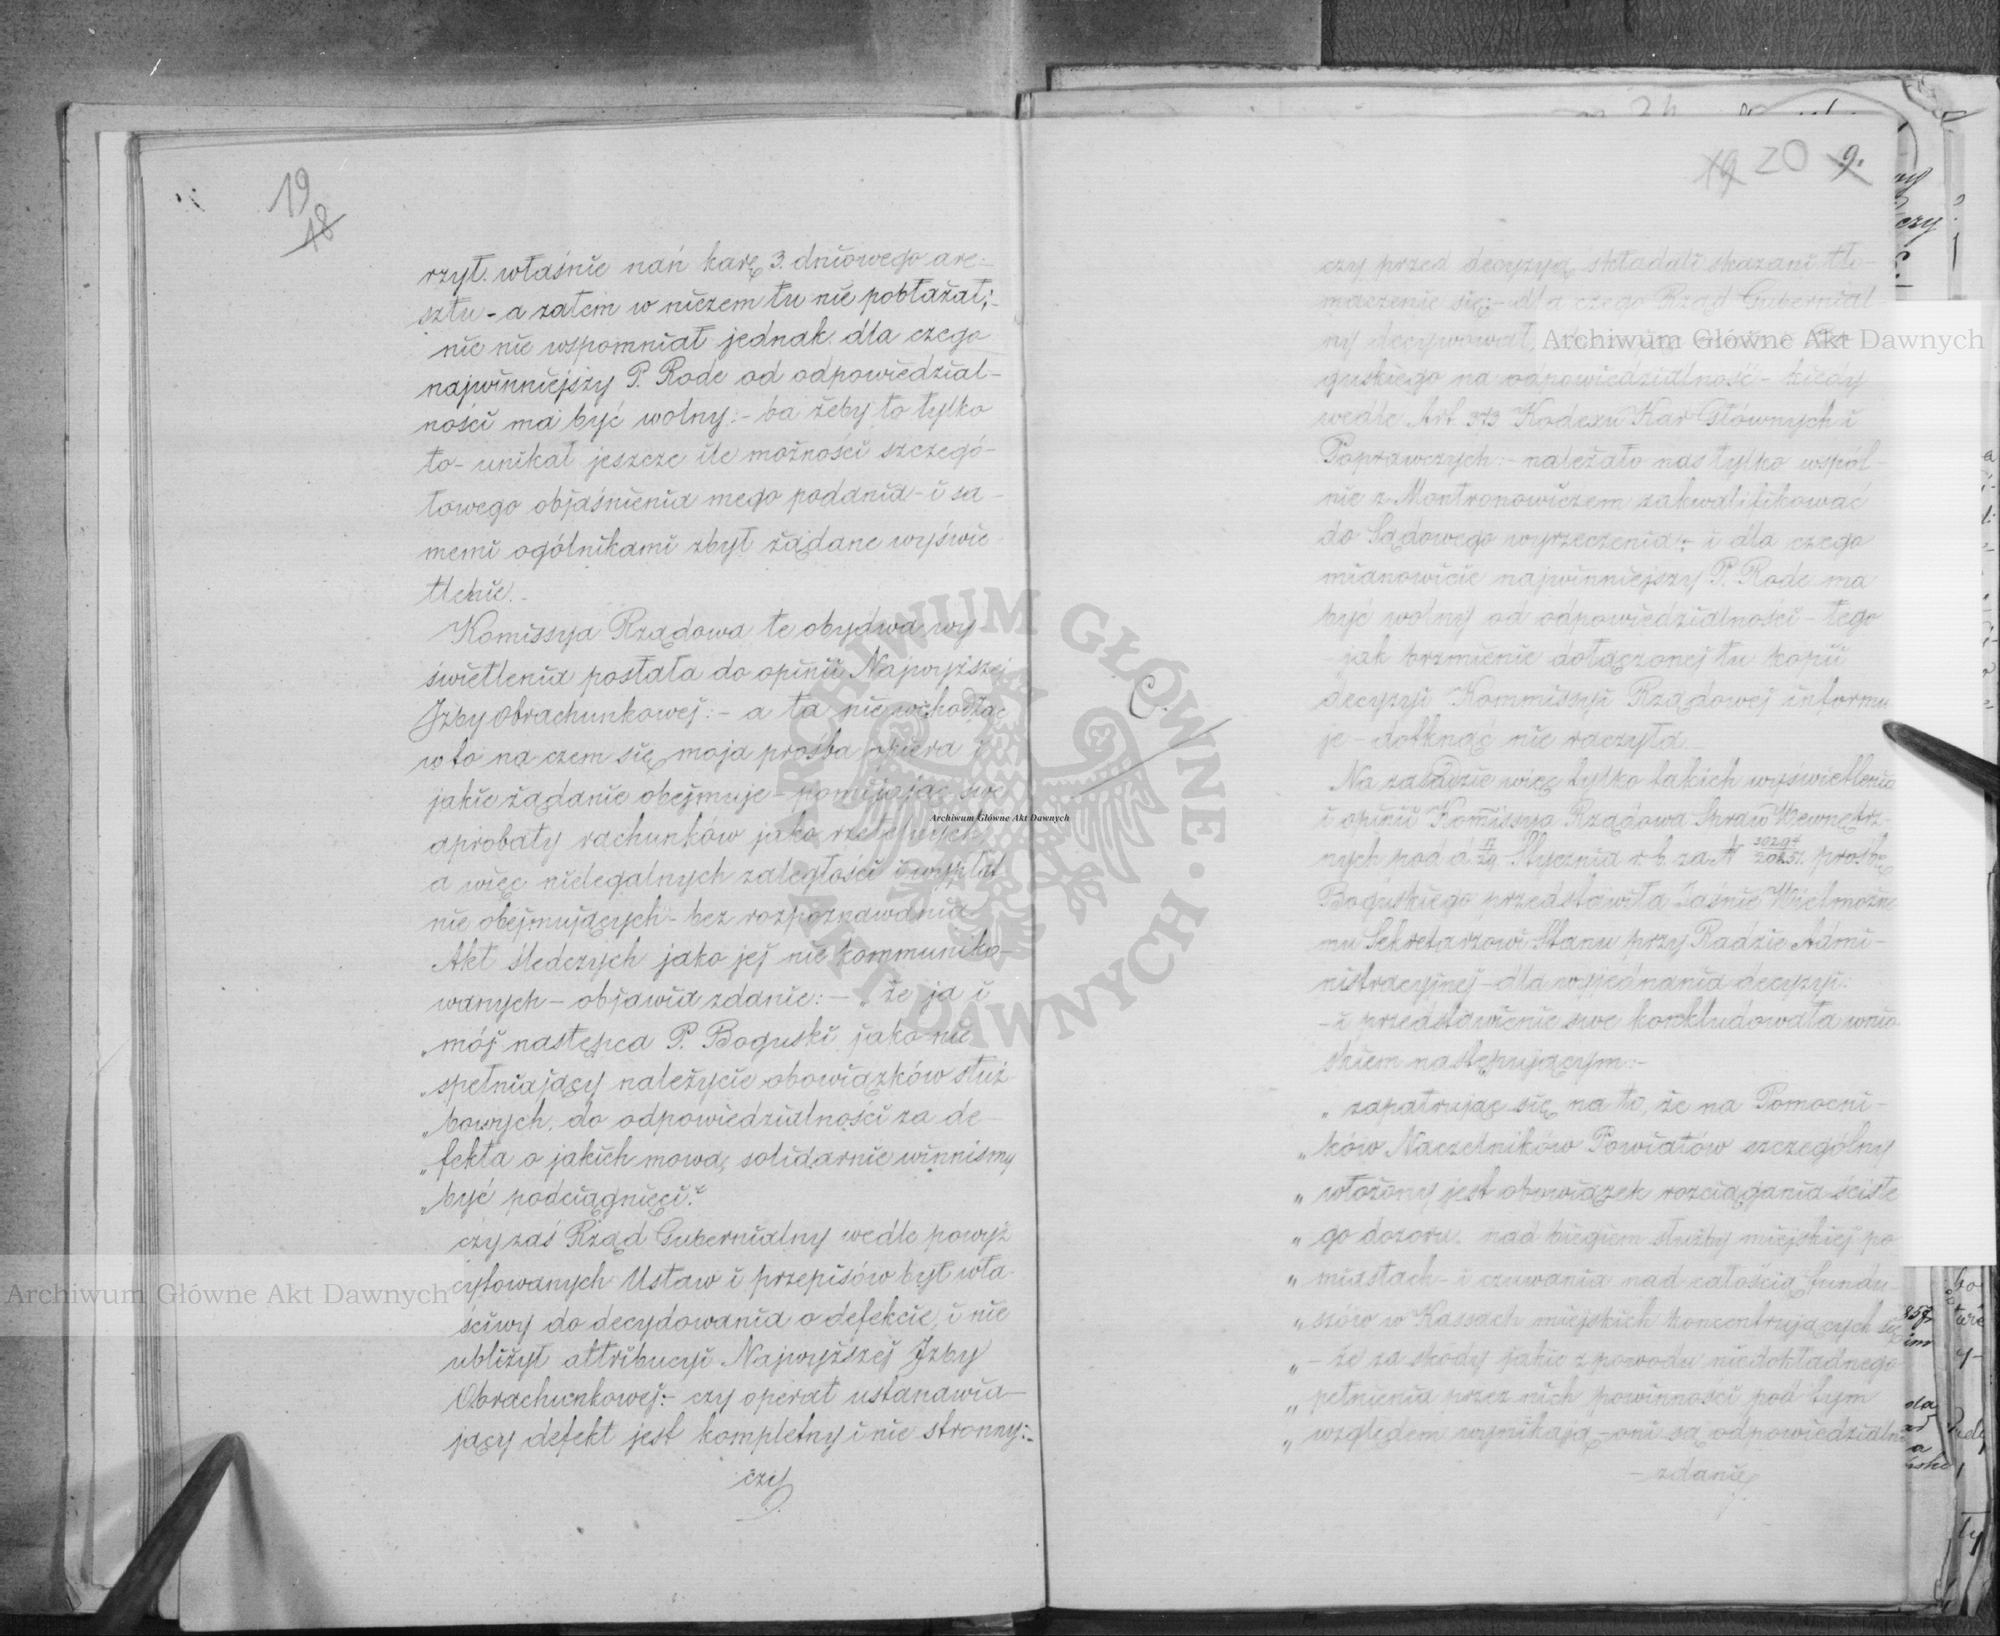 19
18
rzył właśnie nań karę 3. dniowego are-
sztu - a zatem w niczem tu nie pobłażał;-
nie nie wspomniał jednak dla czego
najwinniejszy P. Rode od odpowiedzial-
ności ma być wolny:- ba żeby to tylko
to - unikał jeszcze ile możności szczegó-
łowego objaśnienia mego podania - i sa-
memi ogólnikami zbył żądane wyświe-
tlenie.-
Komissyja Rządowa te obydwa wy-
świetlenia posłała do opinii Najwyższej
Jzby Obrachunkowej:- a ta nie wchodząc
w to na czem się moja prośba opiera i
jakie żądanie obejmuje - pomijając swe
aprobaty rachunków jako rzetelnych
a więc nielegalnych zaległości i wypłat
nie obejmujących - bez rozpoznawania
Akt śledczych jako jej nie kommuniko-
wanych - objawia zdanie:- „że ja i
„mój następca P. Boguski jako nie
„spełniający należycie obowiązków służ
„bowych, do odpowiedzialności za de-
„fekta o jakich mowa, solidarnie winnismy
„być podciągnięci."
czy zaś Rząd Gubernialny wedle powyż
cytowanych Ustaw i przepisów był wła-
ściwy do decydowania o defekcie, i nie
ubliżył attribucyi Najwyższej Jzby
Obrachunkowej:- czy operat ustanawia-
jący defekt jest kompletny i nie stronny:-
czy
19 20 9.
czy przed decyzyą składali skazani tło-
maczenie się:- dla czego Rząd Gubernial
ny decydował,
guskiego na odpowiedzialność - kiedy
wedle Art. 373 Kodexu Kar Głównych i
Poprawczych:- należało nas tylko wspól-
nie z Montronowiczem zakwalifikować
do Sądowego wyrzeczenia:- i dla czego
mianowicie najwinniejszy P. Rode ma
być wolny od odpowiedzialności - tego
jak brzmienie dołączonej tu kopii
C.
decyzyi Kommissyi Rządowej informu
je - dotknąć nie raczyła.-
Na zasadzie więc tylko takich wyświetlenia
i opinii Komissya Rządowa Spraw Wewnętrz-
nych pod d. 17/29 Stycznia r. b. za № prośbę
Boguskiego przedstawiła Jaśnie Wielmożne
mu Sekretarzowi Stanu przy Radzie Admi-
nistracyjnej - dla wyjednania decyzyi:
- i przedstawienie swe konkludowała wnio
skiem następującym:-
„zapatrując się na to, że na Pomocni-
„ków Naczelników Powiatów szczególny
„włożony jest obowiązek rozciągania ścisłe
„go dozoru nad biegiem służby miejskiej po
„miastach - i czuwania nad całością fundu-
„szów w Kassach miejskich koncentrujących się
„- że za skody jakie z powodu niedokładnego
„pełnienia przez nich powinności pod tym
„względem wynikają - oni są odpowiedzialni
- zdanie
Archiwum Główne Akt Dawnych
Archiwum Główne Akt Dawnych
Archiwum Główne Akt Dawnych
ARCHIWUM GŁÓWNE AKT DAWNYCH